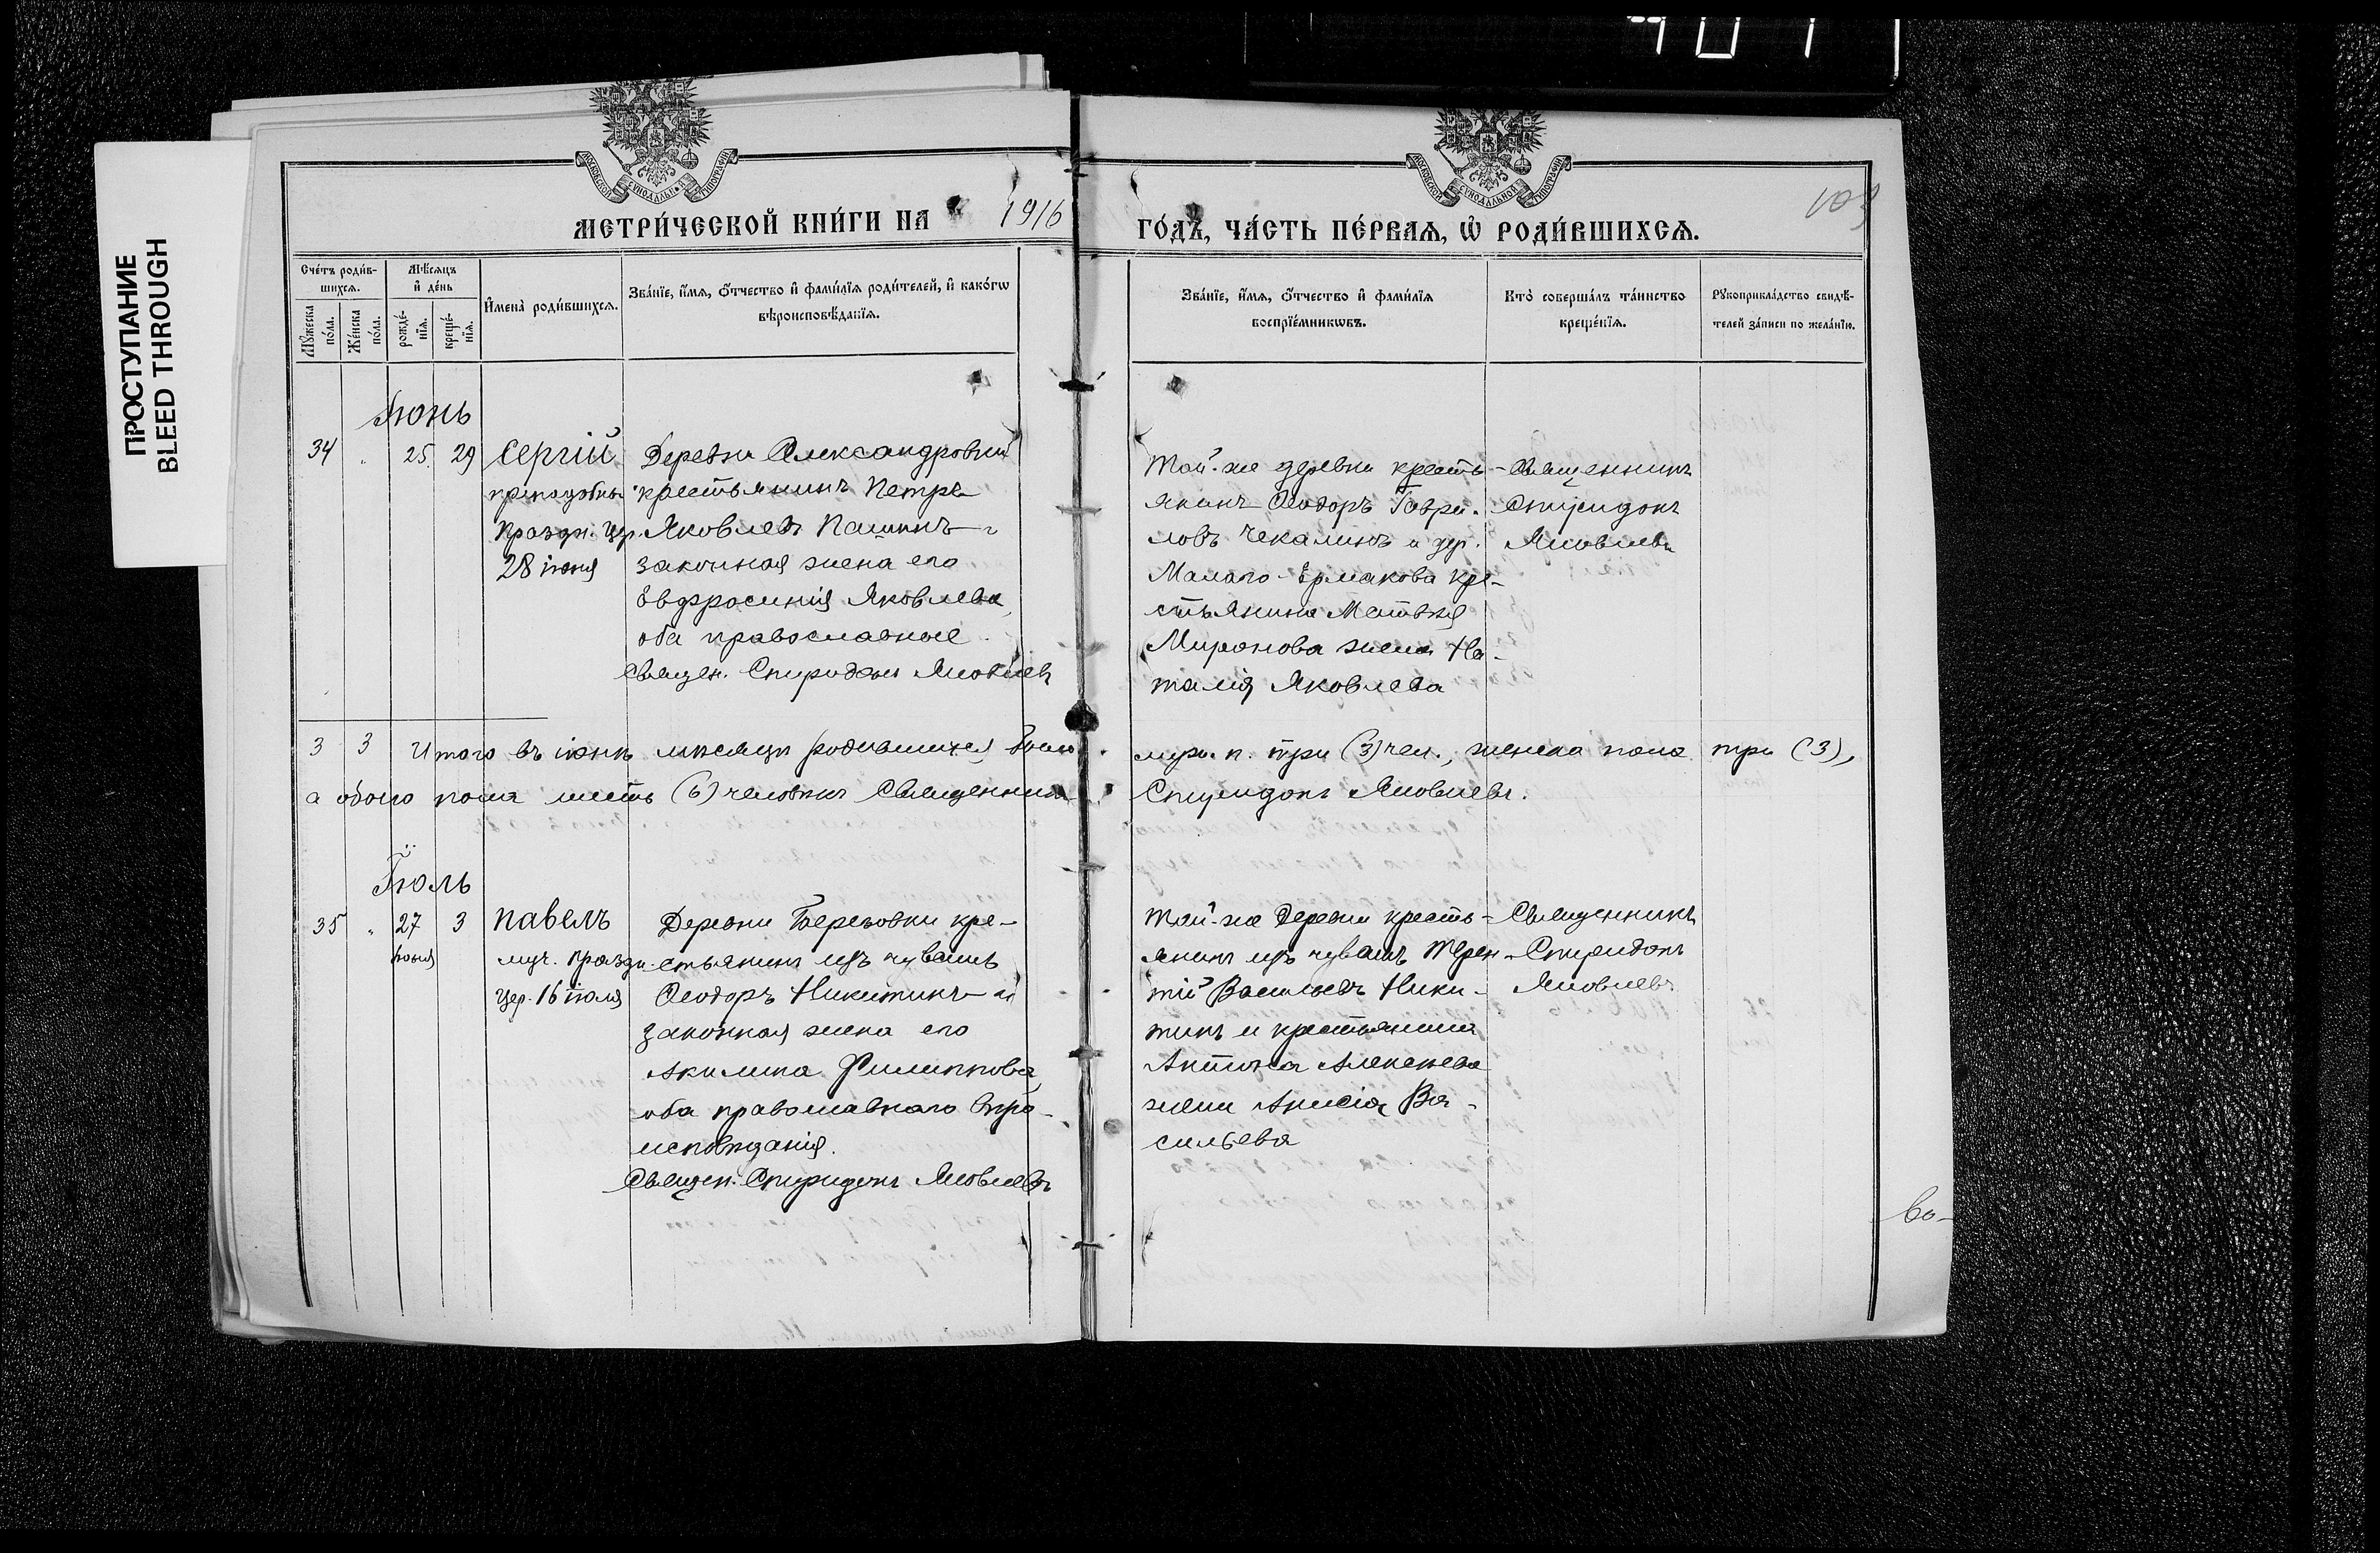 ПРОСТУПАНИЕ
BLEED THROUGH
МОСКОВСКОЙ СѴНОДАЛЬНОЙ ТИПОГРАФІИ
МОСКОВСКОЙ СѴНОДАЛЬНОЙ ТИПОГРАФІИ
МЕТРИ́ЧЕСКОЙ КНИ́ГИ НА 1916
ГО́ДЪ, ЧА́СТЬ ПЕ́РВАѦ, Ѡ҆ РОДИ́ВШИХСѦ.
103
Сче́тъ роди́в-
шихсѧ.
Мꙋ́жеска
по́ла.
Же́нска
по́ла.
Мѣ́сѧцъ
и҆ де́нь
рожде́-
нїѧ.
креще́-
нїѧ.
И҆мена̀ роди́вшихсѧ.
Зва́нїе, и҆́мѧ, ѻ҆́тчество и҆ фами́лїѧ роди́телей, и҆ како́гѡ
вѣроисповѣ́данїѧ.
Зва́нїе, и҆́мѧ, ѻ҆́тчество и҆ фами́лїѧ
воспрїе́мникѡвъ.
Кто̀ соверша́лъ та́инство
креще́нїѧ.
Рꙋкоприкла́дство свидѣ́-
телей за́писи по жела́нїю.
Іюнь
34 " 25. 29 Сергій
преподобн.
Праздн. цер.
28 іюня
Деревни Александровки
крестьянинъ Петръ
Яковлевъ Пашинъ и
законная жена его
Евфросинія Яковлева,
оба православные.
Священ. Спиридонъ Яковлевъ
Той-же деревни кресть-
янинъ Ѳеодоръ Гаври-
ловъ Чекалинъ и дер.
Малаго-Ермакова кре-
стьянина Матѳея
Миронова жена На-
талія Яковлева
Священникъ
Спиридонъ
Яковлевъ
3 3 Итого въ іюнѣ мѣсяцѣ родившихся было муж. п. три (3) чел., женска пола три (3),
а обоего пола шесть (6) человѣкъ Священникъ Спиридонъ Яковлевъ.
Іюль
35 " 27 3 Павелъ
іюня
муч. праздн.
цер. 16 іюля
Деревни Березовки кре-
стьянинъ изъ чувашъ
Ѳеодоръ Никитинъ и
законная жена его
Акилина Филиппова,
оба православнаго вѣро-
исповѣданія.
Священ. Спиридонъ Яковлевъ
Той-же деревни кресть-
янинъ изъ чувашъ Терен-
тій Васильевъ Ники-
тинъ и крестьянина
Алексѣева
жена Анисія Ва-
сильева
Священникъ
Спиридонъ
Яковлевъ
Во-